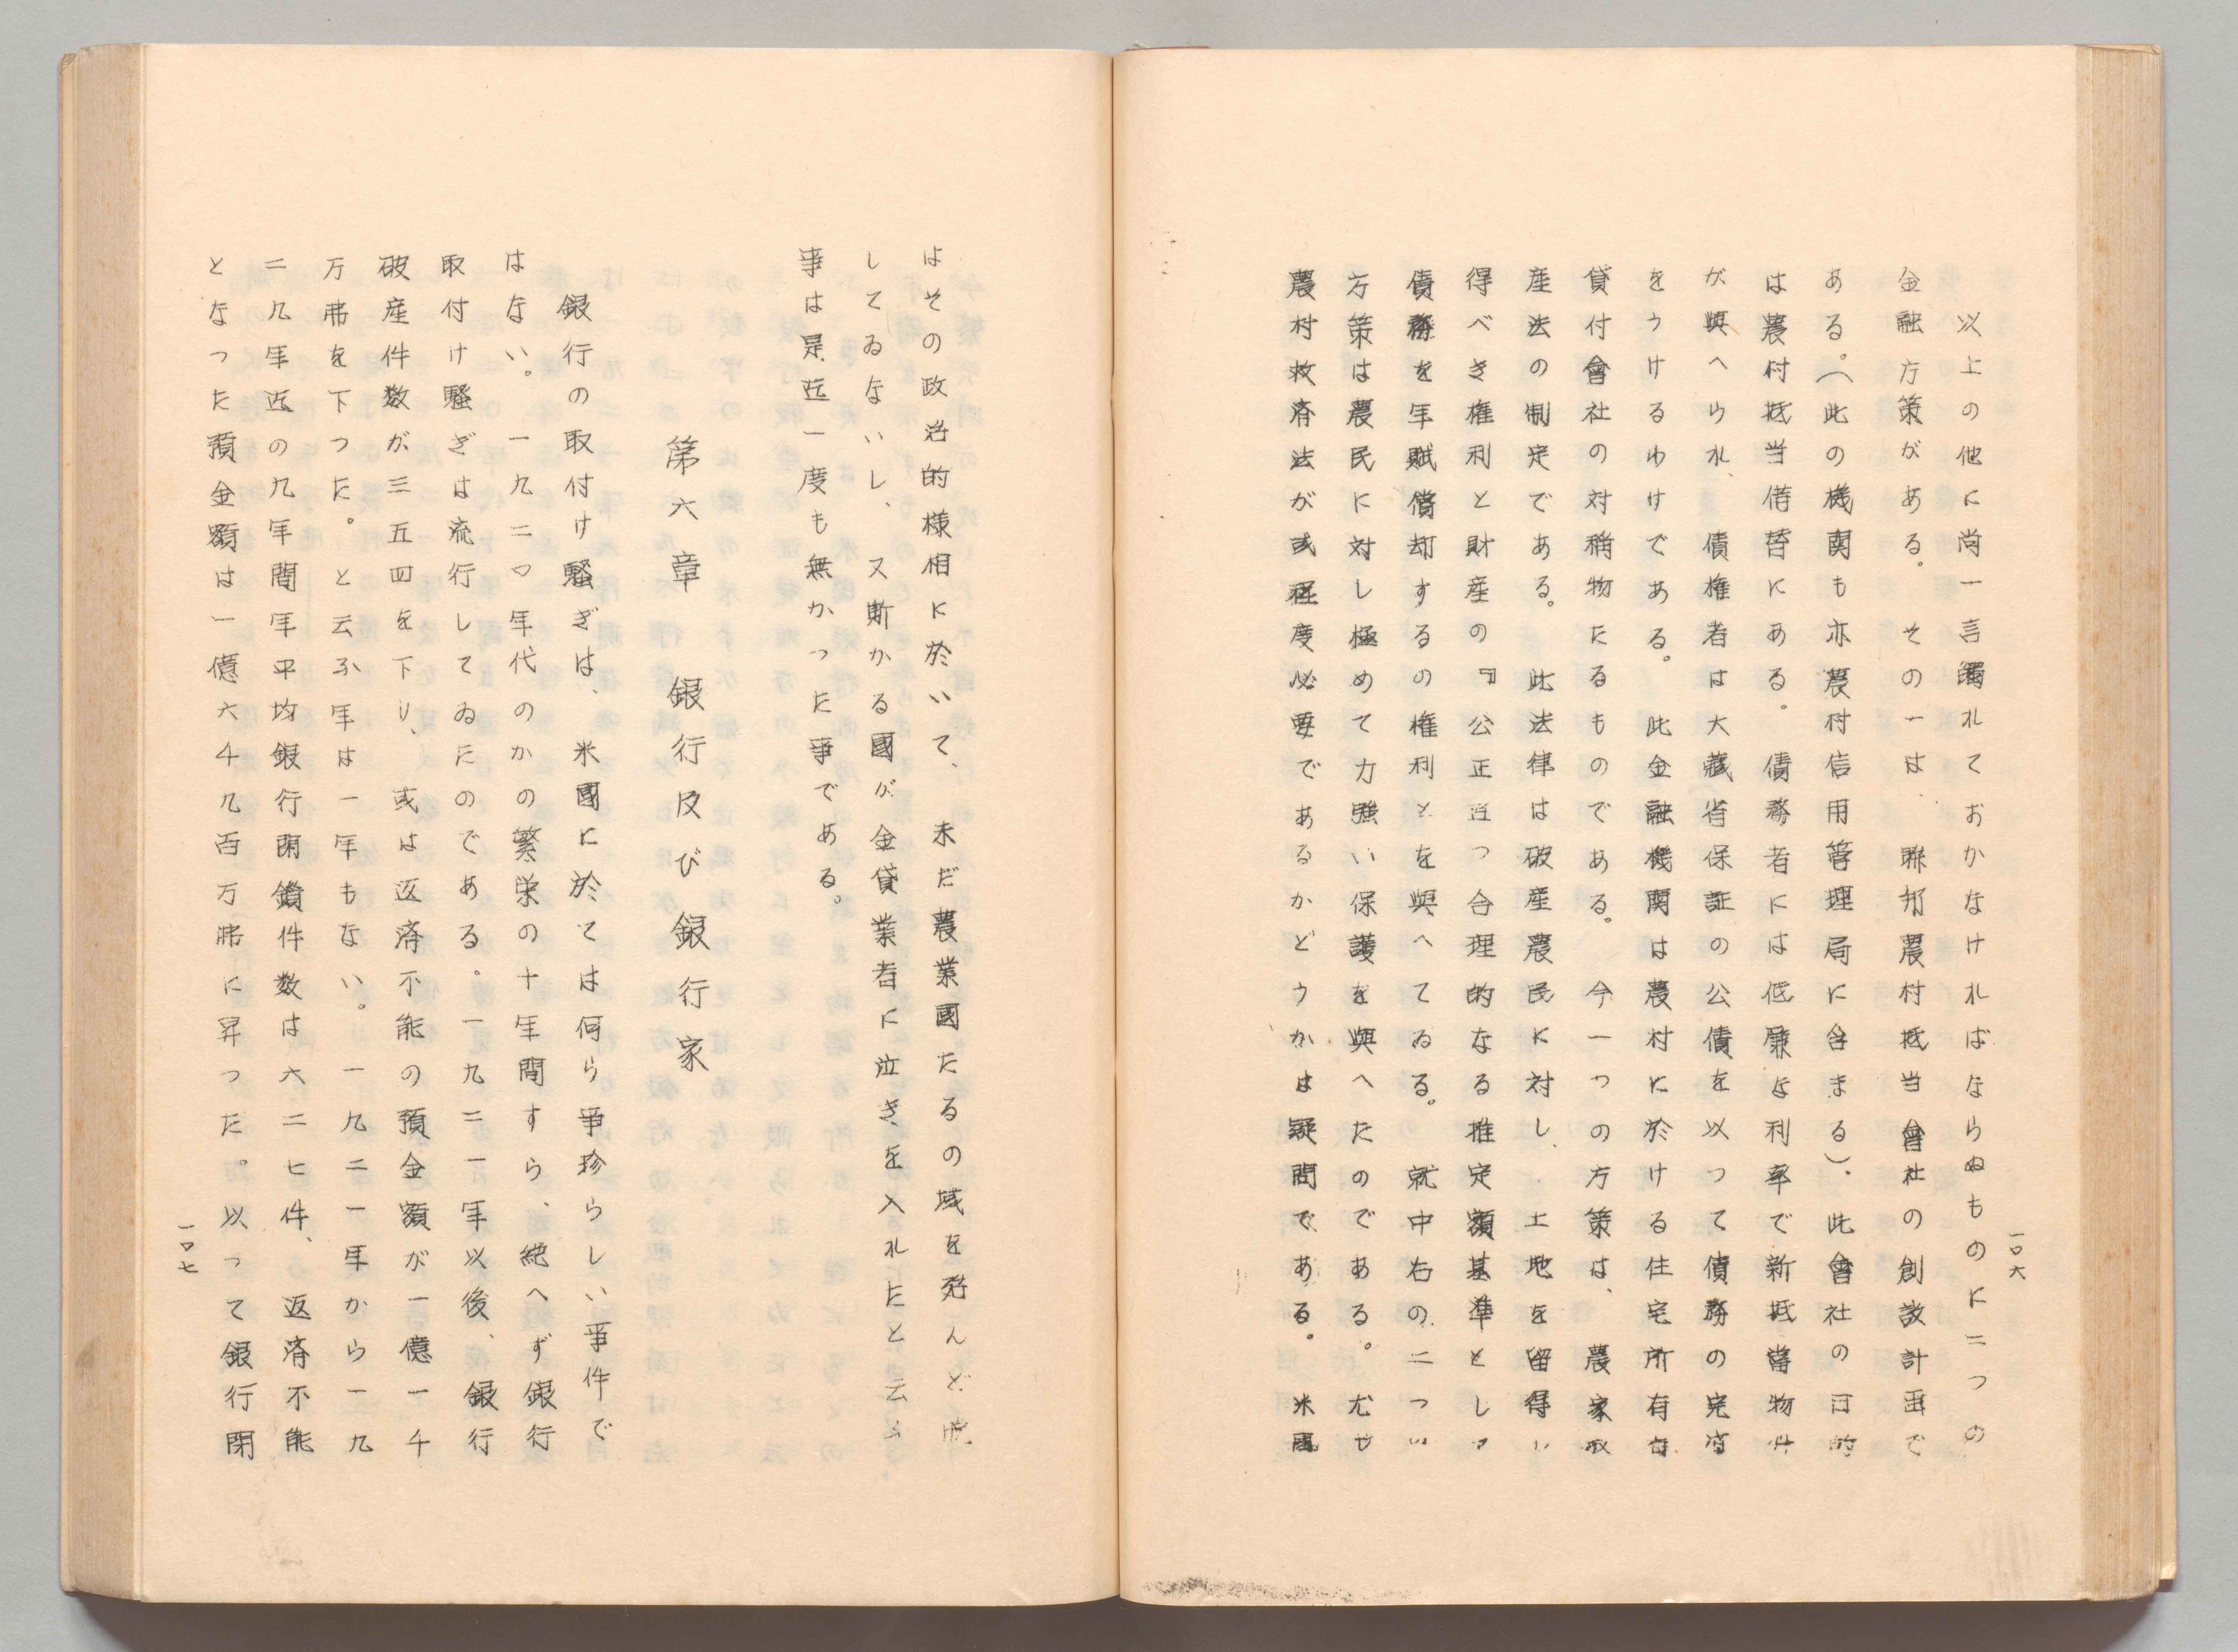 一〇六
以上の他に尚一言觸れておかなければならぬものに二つの
金融方策がある。その一は、聯邦農村抵当會社の創設計画で
ある。（此の機関も亦農村信用管理局に含まる）。此會社の目的
は農村抵当借替にある。債務者には低廉な利率で新抵當物件
が與へられ、債権者は大藏省保証の公債を以つて債務の完済
をうけるわけである。此金融機関は農村に於ける住宅所有者
貸付會社の対稱物たるものである。今一つの方策は、農家破
産法の制定である。此法律は破産農民に対し、土地を留得し
得べき権利と財産の『公正且つ合理的なる推定額基準として
債務を年賦償却するの権利とを與へてゐる。就中右の二つの
方策は農民に対し極めて力強い保護を與へたのである。尤も
農村救済法が或程度必要であるかどうかは疑問である。米國
はその政治的様相に於いて、未だ農業國たるの域を殆んど脱
してゐないし、又斯かる國が金貸業者に泣きを入れたと云ふ
事は是迄一度も無かつた事である。
第六章　銀行及び銀行家
銀行の取付け騒ぎは、米國に於ては何ら事珍らしい事件で
はない。一九二〇年代のかの繁栄の十年間すら、絶へず銀行
取付け騒ぎは流行してゐたのである。一九二一年以後、銀行
破産件数が三五四を下り、或は返済不能の預金額が一億一千
万弗を下つた。と云ふ年は一年もない。一九二一年から一九
二九年迄の九年間年平均銀行閉鎖件数は六二七件、返済不能
となつた預金額は一億六千九百万弗に昇つた。以つて銀行閉
一〇七